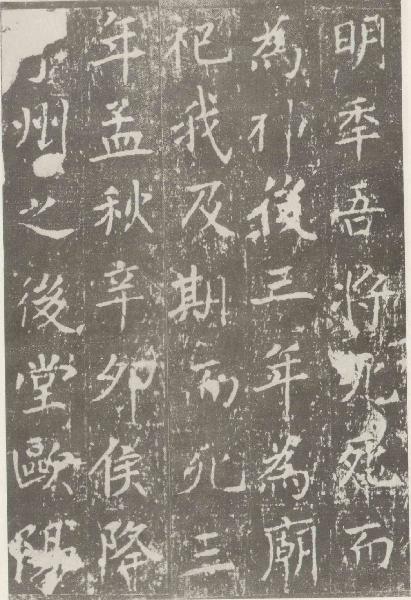 明年吾將死死而
為神後三年為廟
祀我及期而死三
年孟秋辛卯侯降
州之後堂歐陽